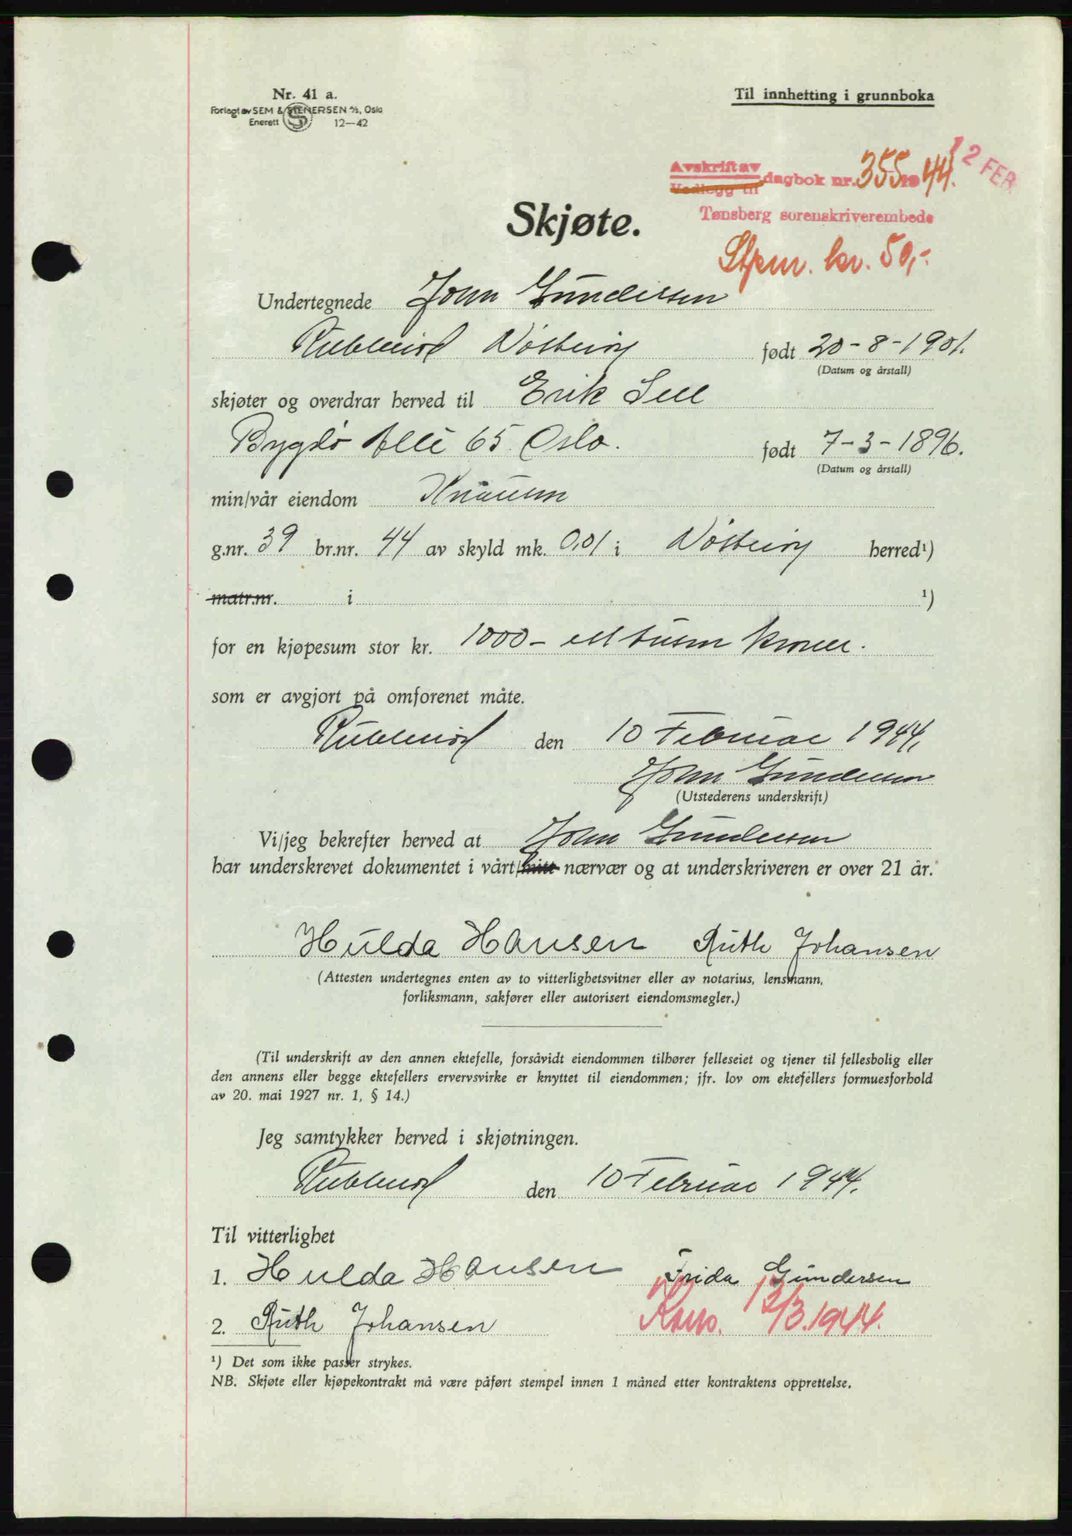 Nr. 41 a.
Forlagt av SEM & STENERSEN A/S, Oslo
Enerett 12—42
Til innhefting i grunnboka
12 FEB.
Avskrift av
Vedlegg til dagbok nr. 355 1944.
Tønsberg sorenskriverembede
Stpm. kr. 50,-
Skjøte.
Undertegnede John Gundersen
Nøtterøy født 20-8-1901.
(Datum og årstall)
skjøter og overdrar herved til Erik Sell
Bygdø Alle 65 Oslo. født 7-3-1896.
(Datum og årstall)
min/vår eiendom Knausen
g.nr. 39 br.nr. 44 av skyld mk. 0,01 i Nøtterøy herred¹)
matr.nr. i ¹)
for en kjøpesum stor kr. 1000- ett tusen kroner.
som er avgjort på omforenet måte.
den 10 Februar 1944.
John Gundersen
(Utstederens underskrift)
Vi/jeg bekrefter herved at John Gundersen
har underskrevet dokumentet i vårt/mitt nærvær og at underskriveren er over 21 år.
Hulda Hansen Ruth Johansen
(Attesten undertegnes enten av to vitterlighetsvitner eller av notarius, lensmann,
forliksmann, sakfører eller autorisert eiendomsmegler.)
(Til underskrift av den annen ektefelle, forsåvidt eiendommen tilhører felleseiet og tjener til fellesbolig eller
den annens eller begge ektefellers ervervsvirke er knyttet til eiendommen; jfr. lov om ektefellers formuesforhold
av 20. mai 1927 nr. 1, § 14.)
Jeg samtykker herved i skjøtningen.
den 10 Februar 1944.
Til vitterlighet
1. Hulda Hansen Frida Gundersen
2. Ruth Johansen 13/3.1944.
¹) Det som ikke passer strykes.
NB. Skjøte eller kjøpekontrakt må være påført stempel innen 1 måned etter kontraktens opprettelse.